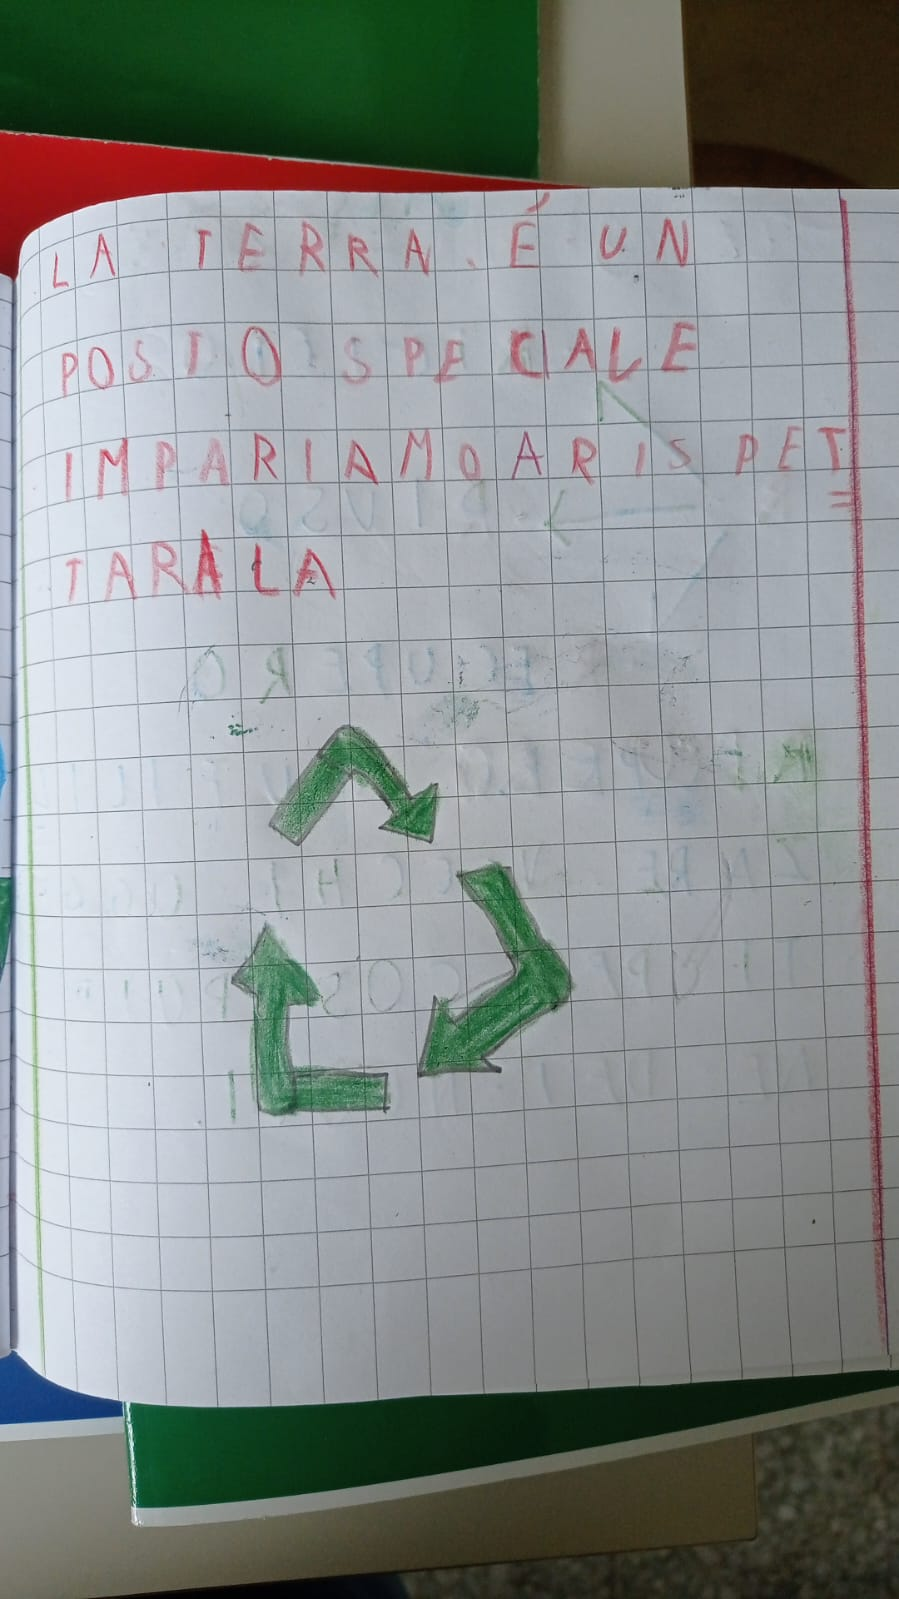 LA TERRA É UN
POSTO SPECIALE
IMPARIAMO A RISPET=
TARLA